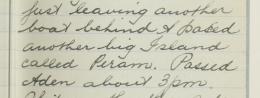 just leaving another
boat behind & passed
another big Island
called Piram. Passed
Aden about 3pm.